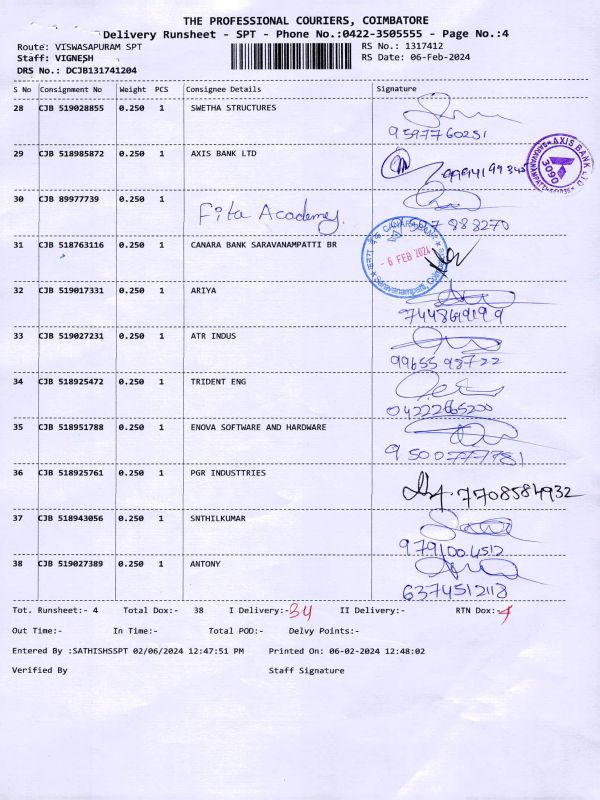 THE PROFESSIONAL COURIERS, COIMBATORE
Delivery Runsheet - SPT - Phone No.:0422-3505555 - Page No.:4
Route: VISWASAPURAM SPT RS No.: 1317412
Staff: VIGNESH RS Date: 06-Feb-2024
DRS No.: DCJB131741204
S No Consignment No Weight PCS Consignee Details Signature
28 CJB 519028855 0.250 1 SWETHA STRUCTURES
9597760251
29 CJB 518985872 0.250 1 AXIS BANK LTD
AXIS BANK LTD
3090
30 CJB 89977739 0.250 1 Fita Academy.
888270
31 CJB 518763116 0.250 1 CANARA BANK SARAVANAMPATTI BR
- 6 FEB 2024
32 CJB 519017331 0.250 1 ARIYA
33 CJB 519027231 0.250 1 ATR INDUS
9965598722
34 CJB 518925472 0.250 1 TRIDENT ENG
04222665200
35 CJB 518951788 0.250 1 ENOVA SOFTWARE AND HARDWARE
9500777781
36 CJB 518925761 0.250 1 PGR INDUSTTRIES
7708584932
37 CJB 518943056 0.250 1 SNTHILKUMAR
9791004512
38 CJB 519027389 0.250 1 ANTONY
6374512118
Tot. Runsheet:- 4 Total Dox:- 38 I Delivery:- 34 II Delivery:- RTN Dox:- 4
Out Time:- In Time:- Total POD:- Delvy Points:-
Entered By :SATHISHSSPT 02/06/2024 12:47:51 PM Printed On: 06-02-2024 12:48:02
Verified By Staff Signature